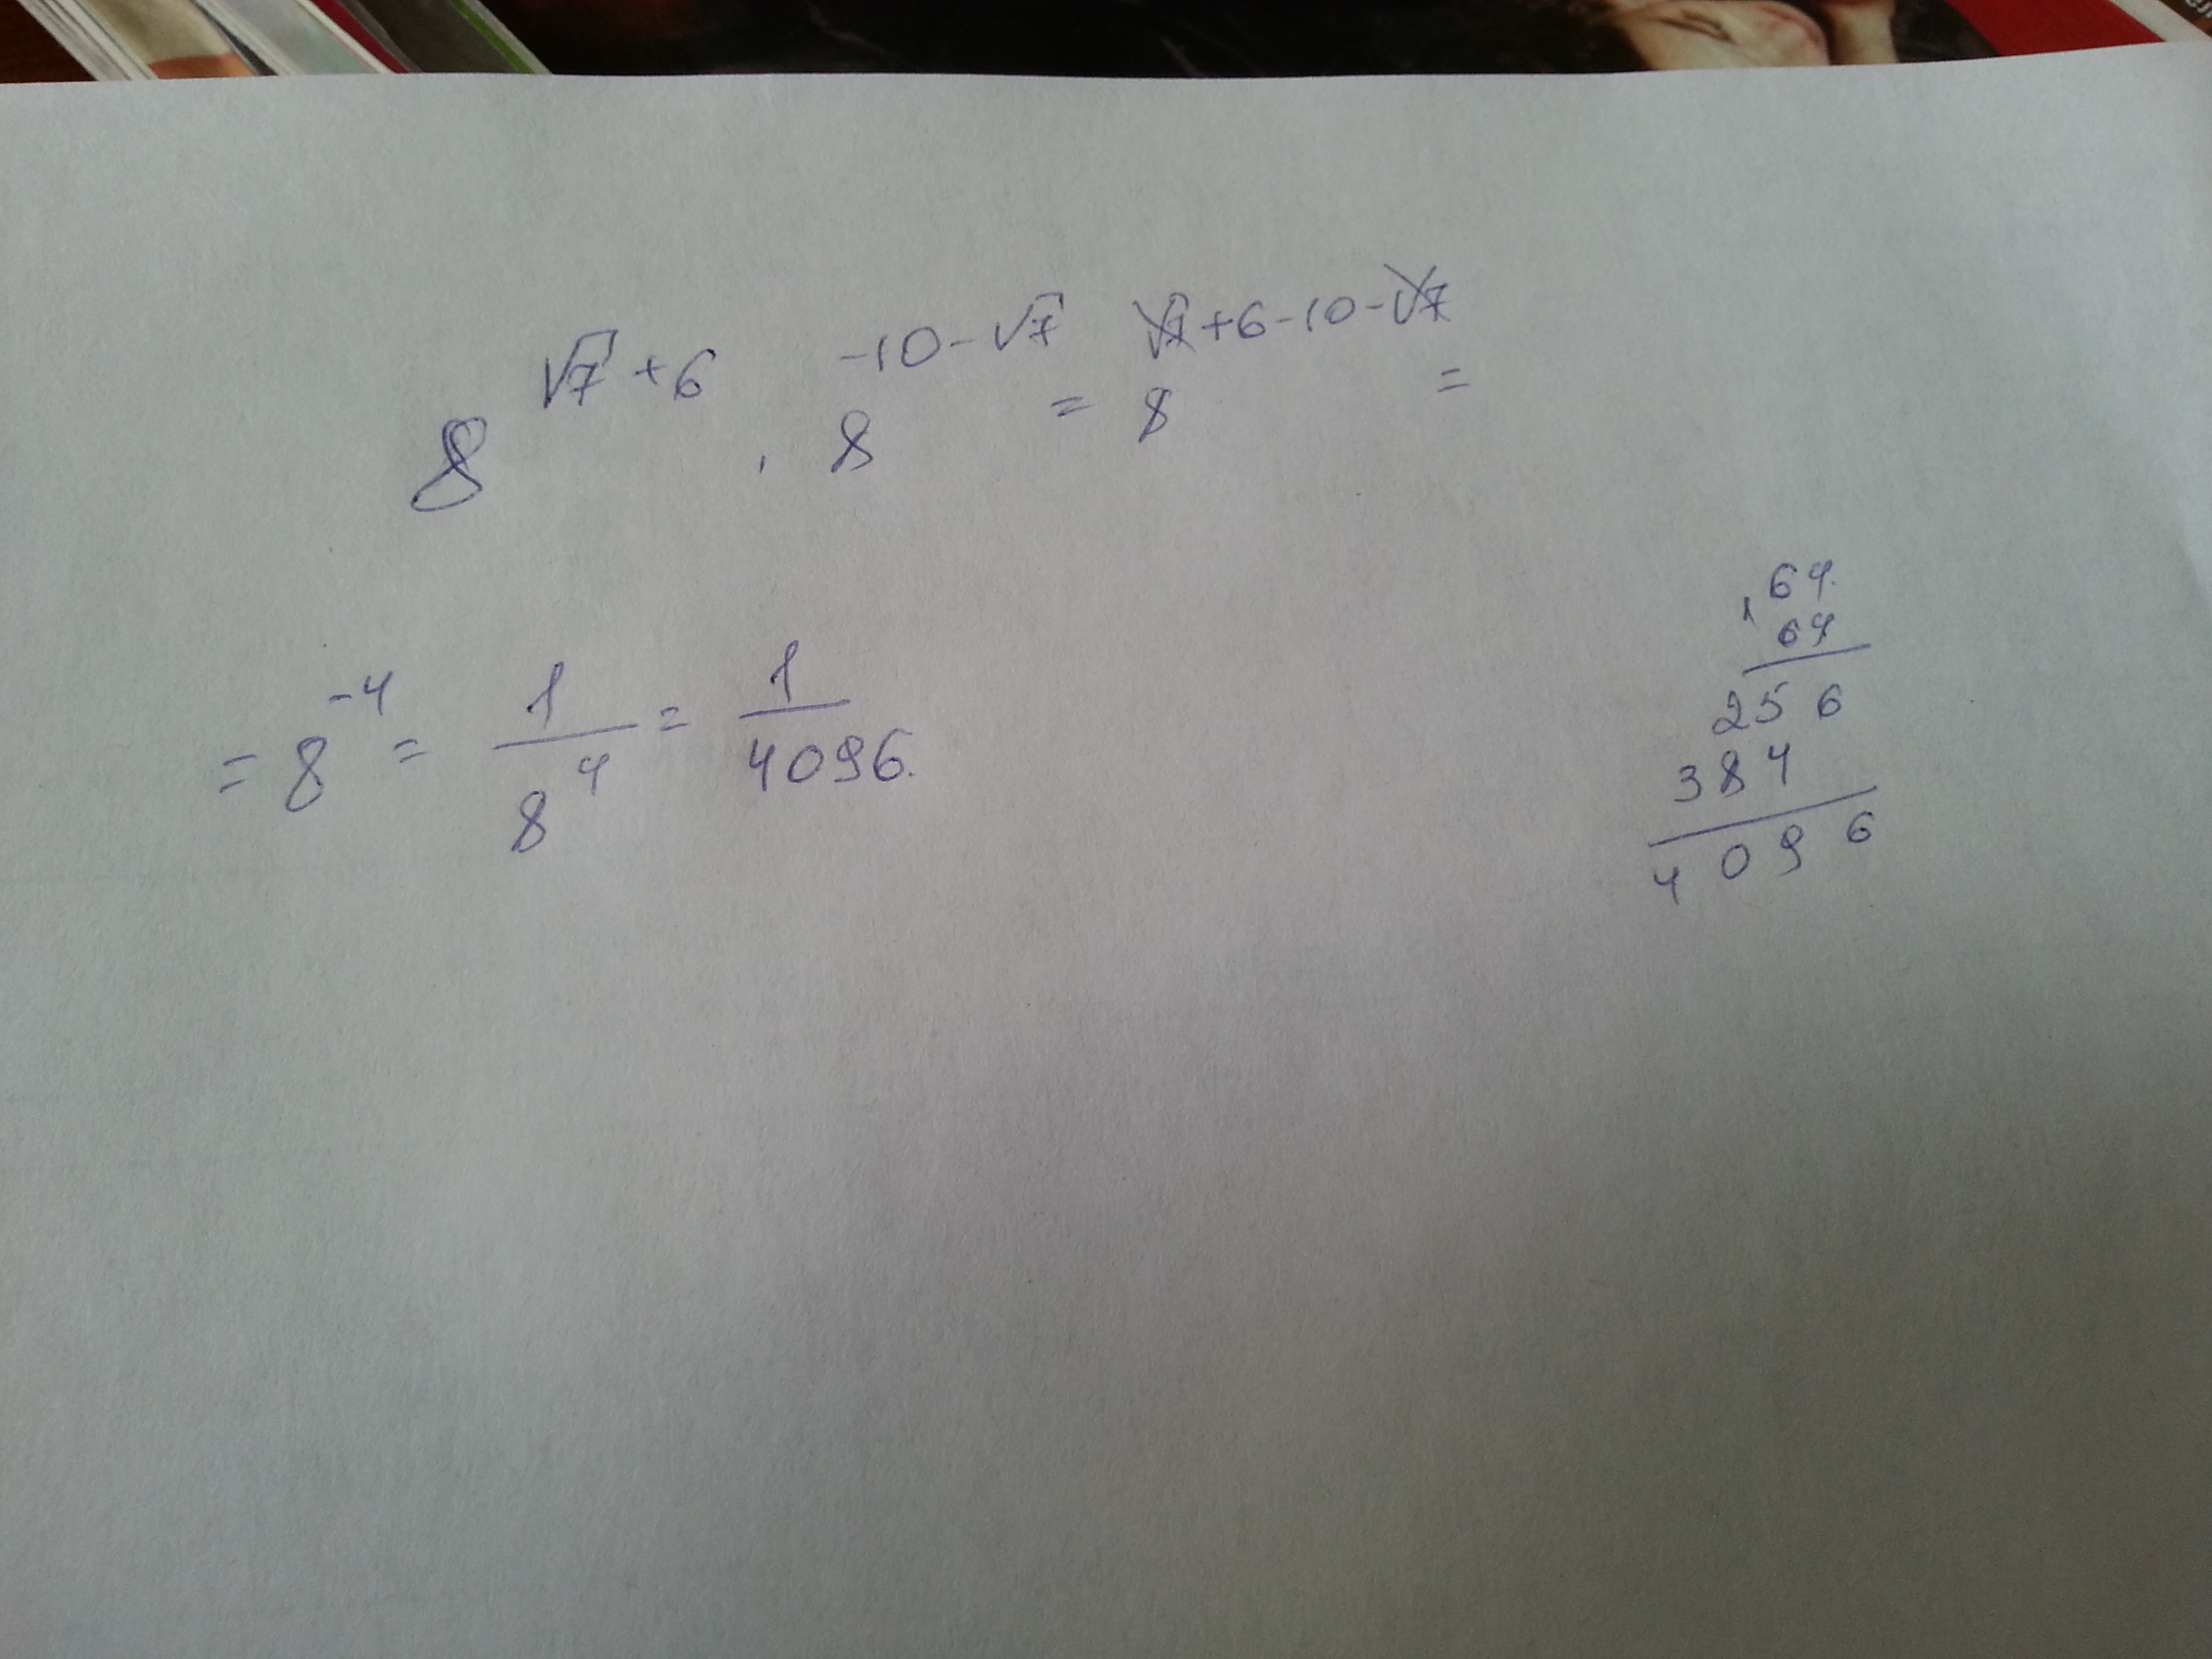 8^{√7+6} · 8^{-10-√7} = 8^{√7+6-10-√7} =
= 8^{-4} = 1/8^4 = 1/4096.
64
64
256
384
4096